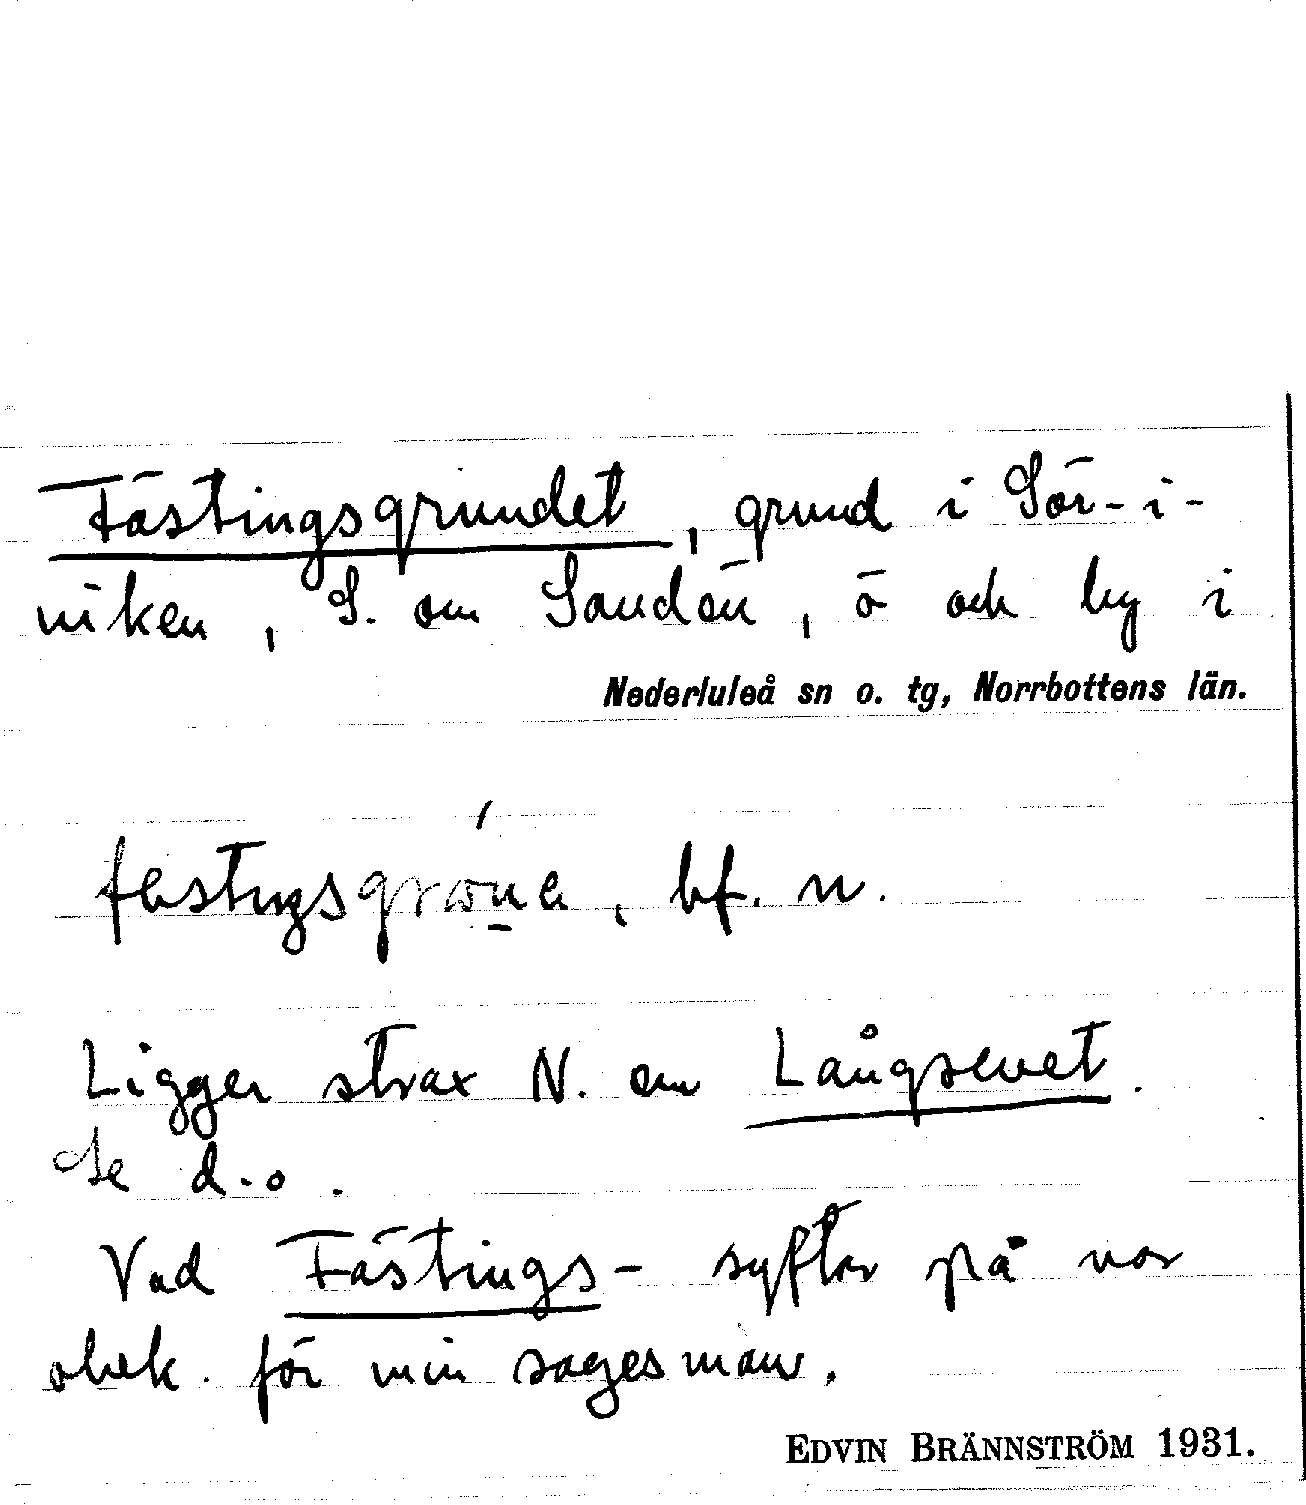 Fästingsgrundet, grund i Sör-i-
viken, S. om Sandön, ö och by i
Nederluleå sn o. tg, Norrbottens län.
bf. n.
Ligger strax N. om Långrevet.
Se d.o.
Vad Fästings- syftar på var
obek. för min sagesman.
EDVIN BRÄNNSTRÖM 1931.